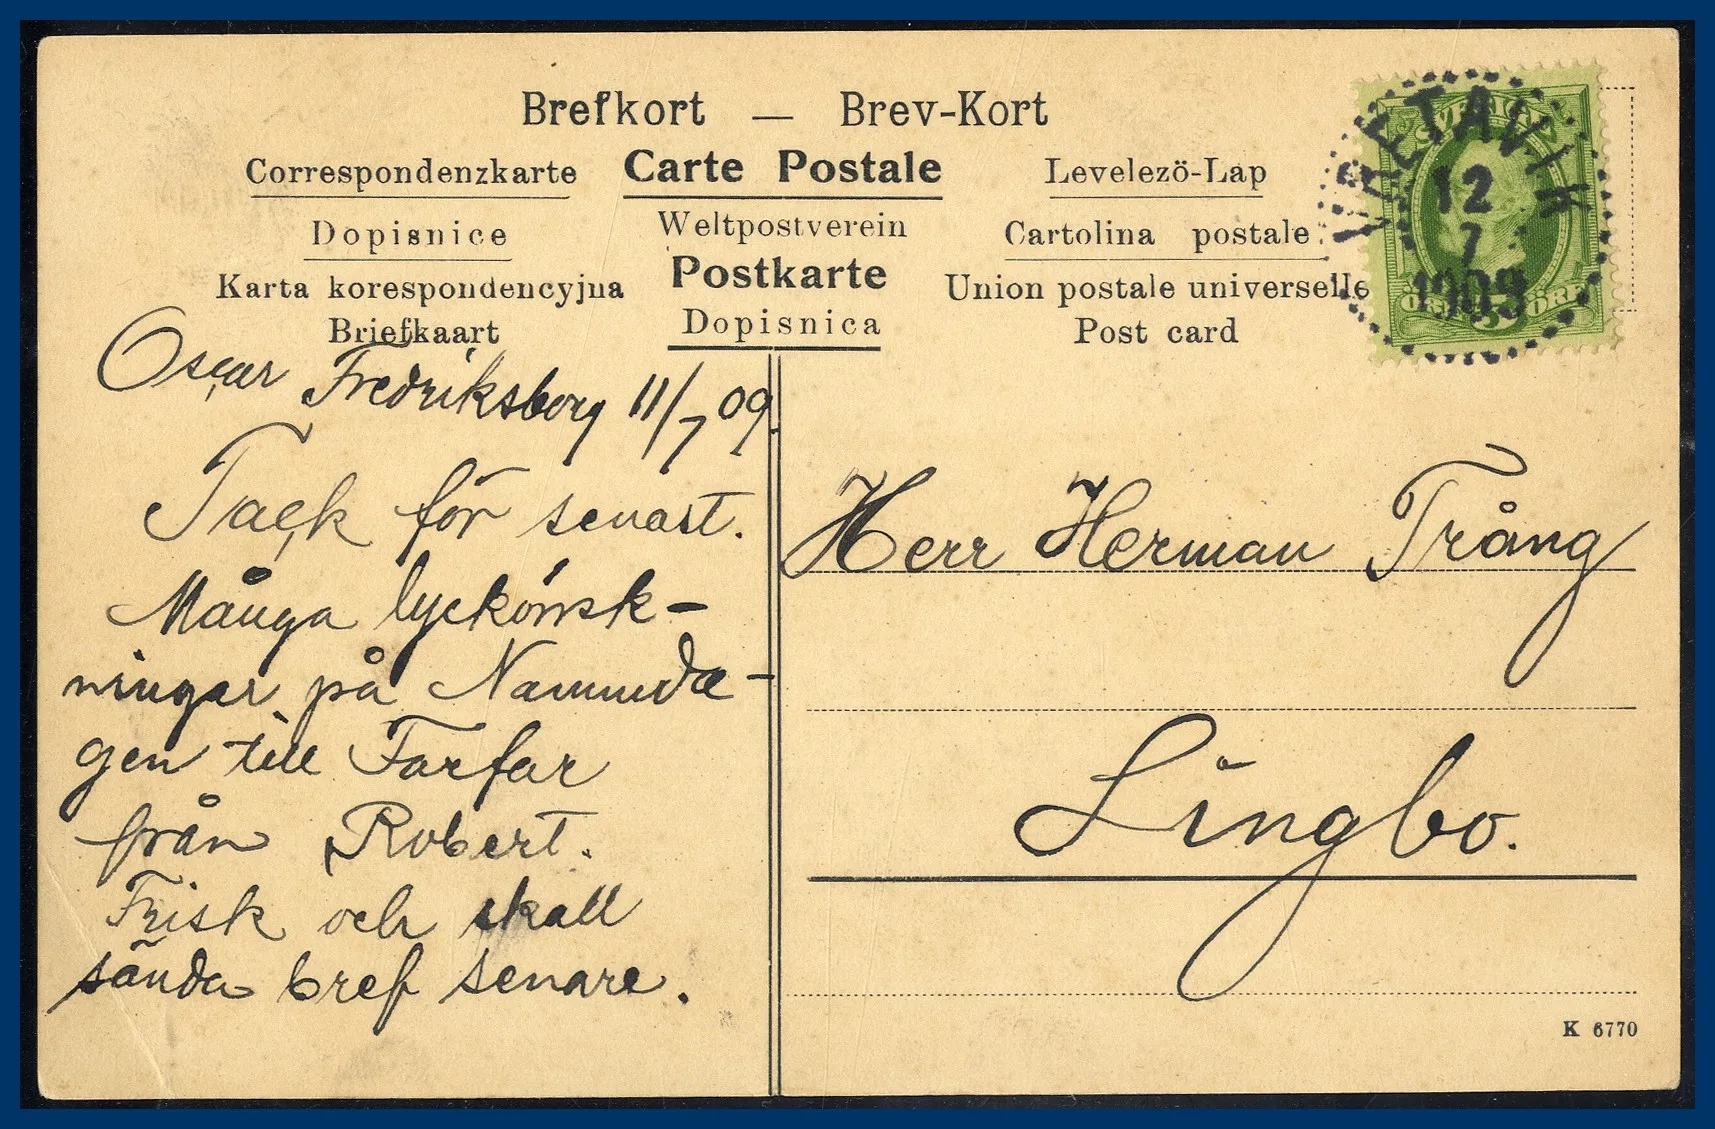 Brefkort — Brev-Kort
Correspondenzkarte Carte Postale Levelezö-Lap
Dopisnice Weltpostverein Cartolina postale
Karta korespondencyjna Postkarte Union postale universelle
Briefkaart Dopisnica Post card
SVERIGE
5
ÖRE ÖRE
VRETAVIK
12
7
1909
Oscar Fredriksborg 11/7 09
Tack för senast.
Många lyckönsk-
ningar på Namnsda-
gen till Farfar
från Robert.
Frisk och skall
sända bref senare.
Herr Herman Trång
Lingbo.
K 6770